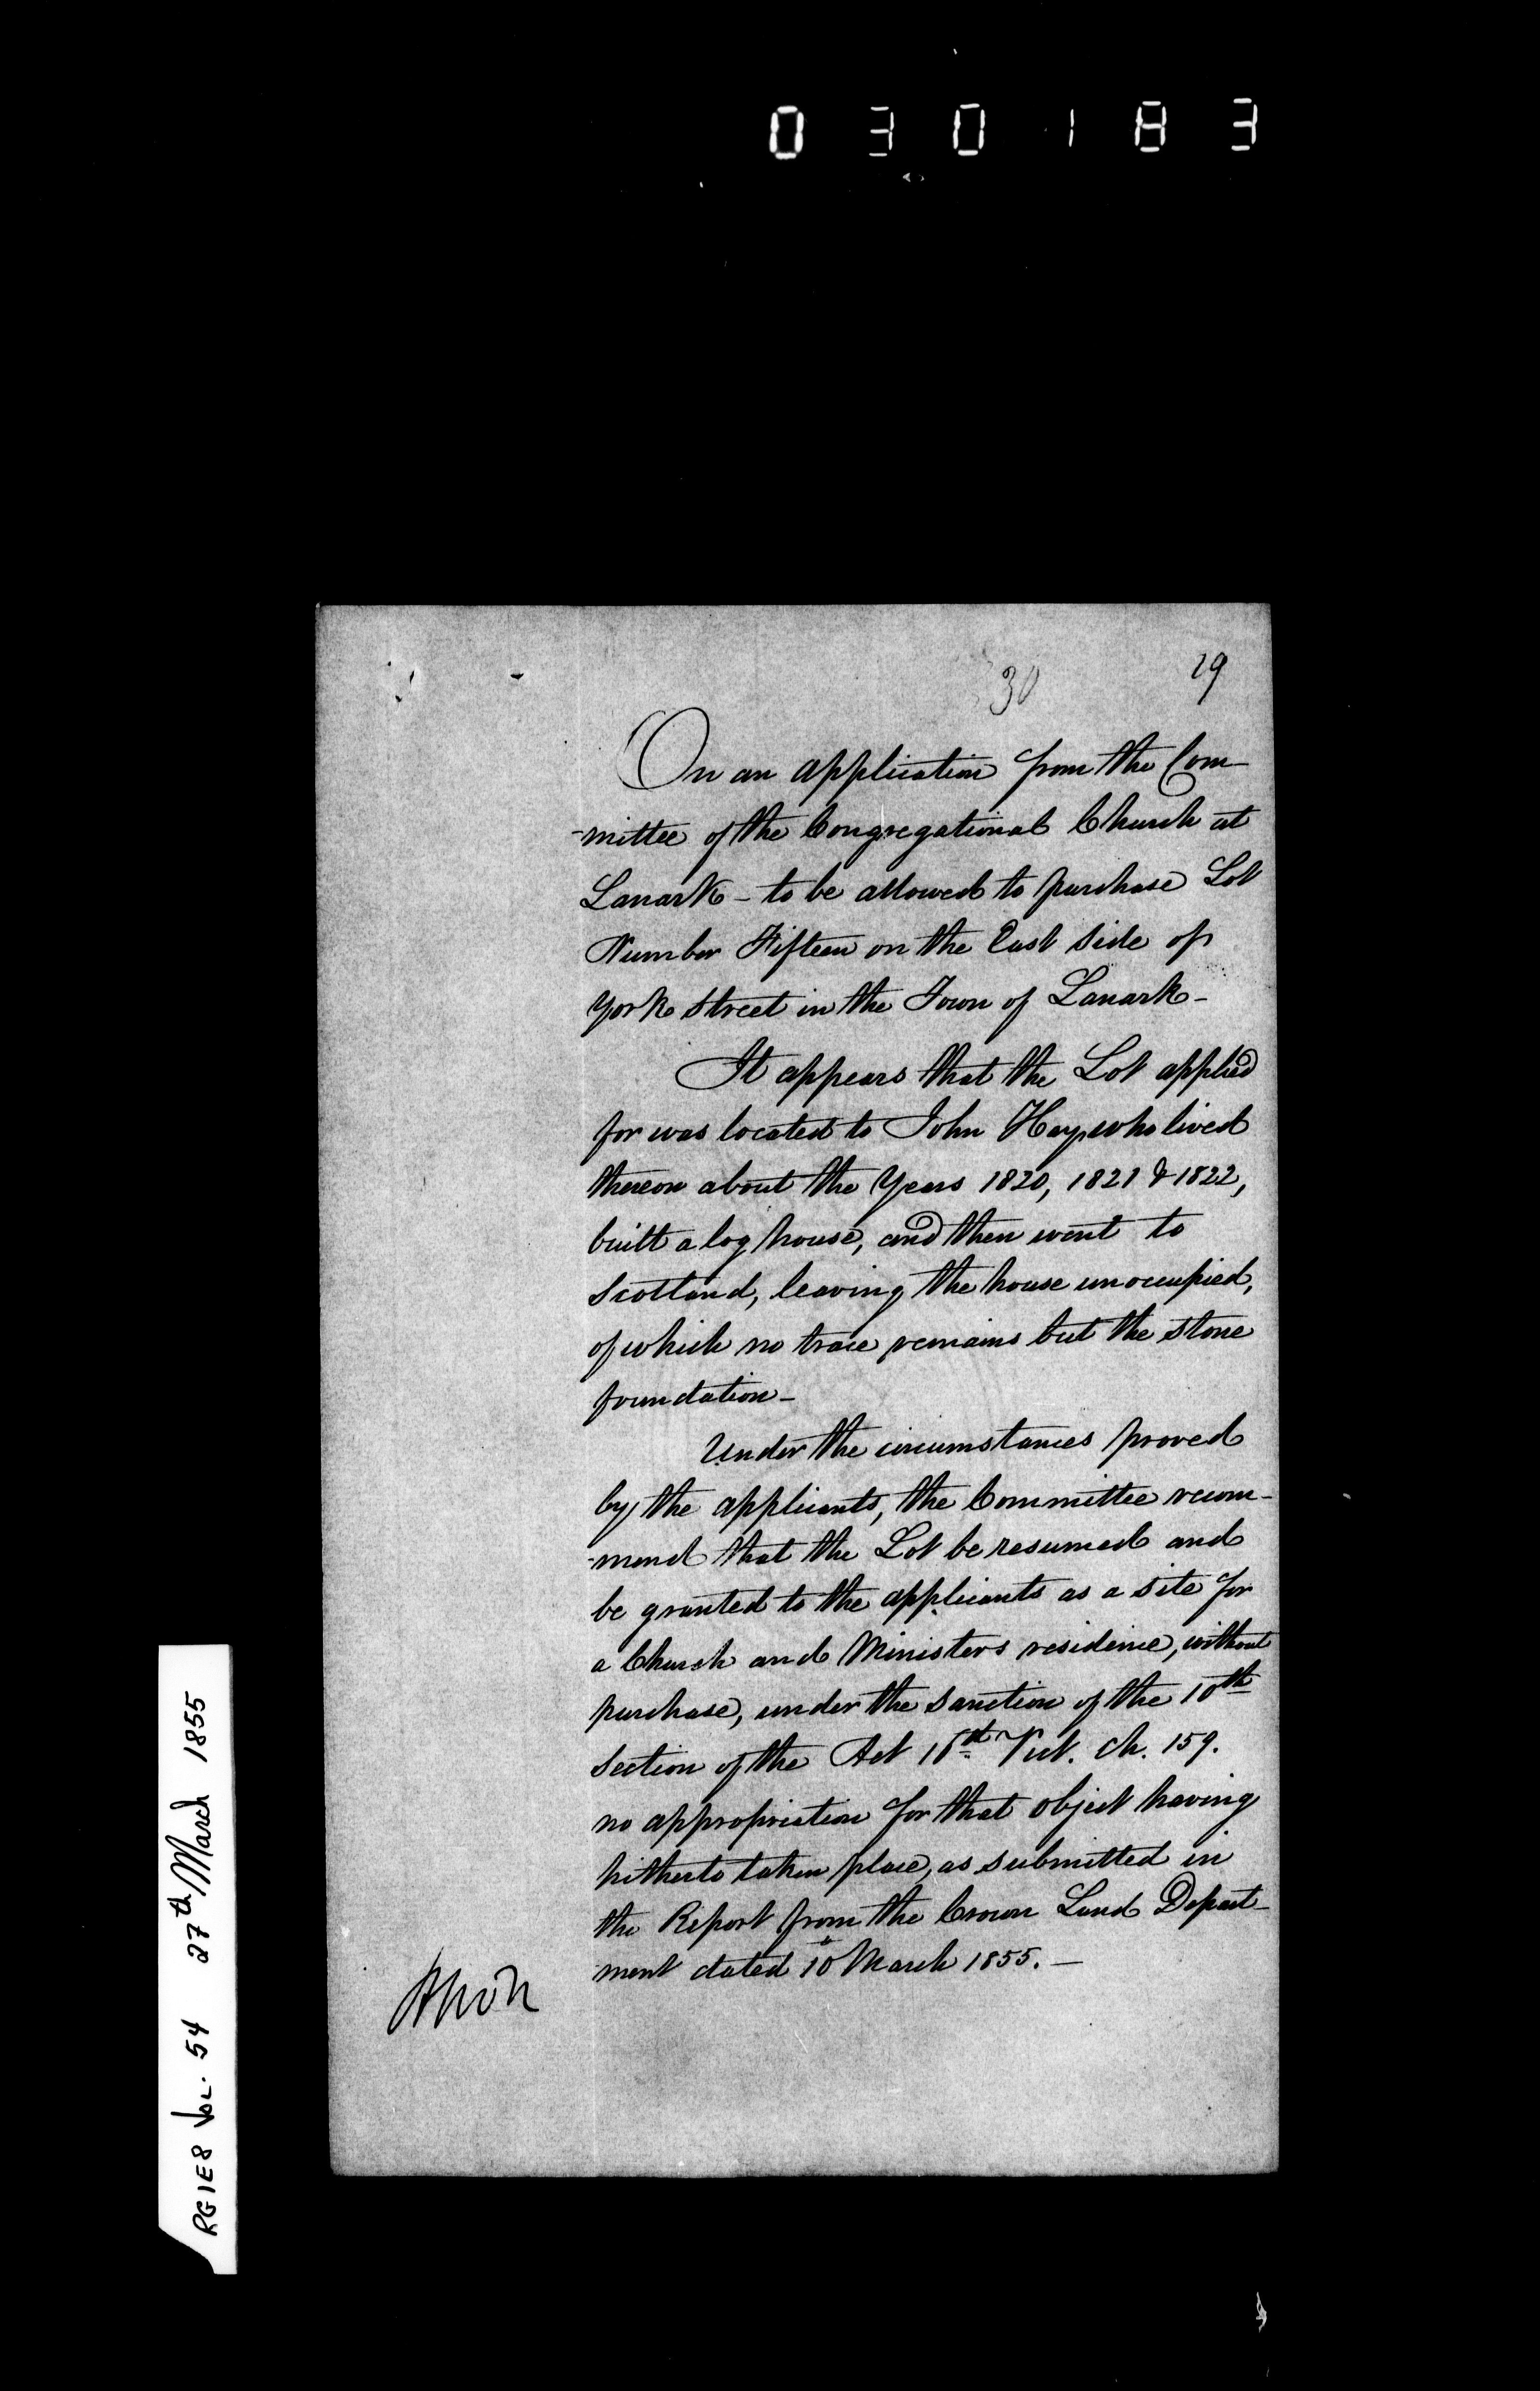 030183
30
19
On an application from the Com-
-mittee of the Congregational Church at
Lanark - to be allowed to purchase Lot
Number Fifteen on the East side of
York Street in the Town of Lanark -
It appears that the Lot applied
for was located to John Hay who lived
thereon about the Years 1820, 1821 & 1822,
built a log house, and then went to
Scotland, leaving the house unoccupied,
of which no trace remains but the stone
foundation -
Under the circumstances proved
by the applicants, the Committee recom-
-mend that the Lot be resumed and
be granted to the applicants as a site for
a Church and Ministers residence, without
purchase, under the sanction of the 10th
section of the Act Vict. Ch. 159.
no appropriation for that object having
hitherto taken place, as submitted in
the Report from the Crown Land Depart-
ment dated 10 March 1855. -
RG1E8 Vol. 54 27th March 1855